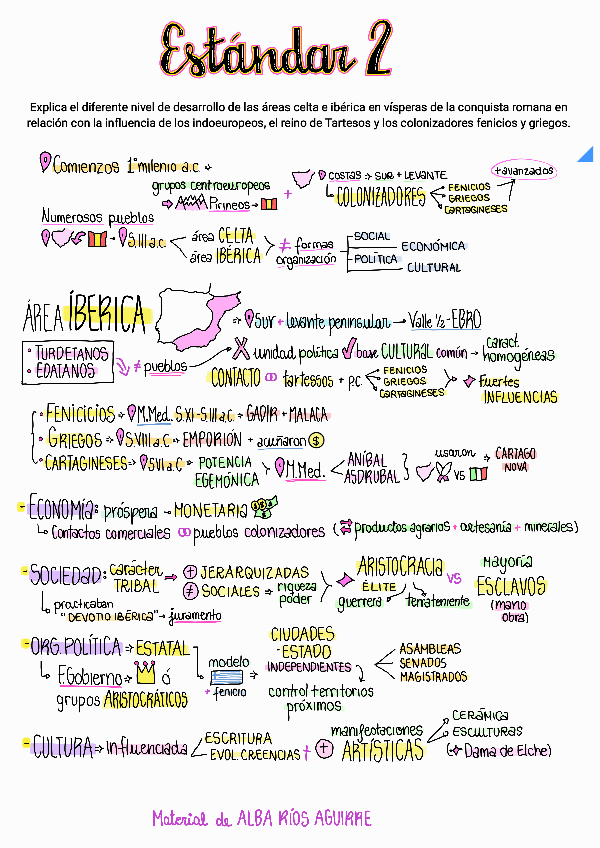 Estándar 2
Explica el diferente nivel de desarrollo de las áreas celta e ibérica en vísperas de la conquista romana en
relación con la influencia de los indoeuropeos, el reino de Tartesos y los colonizadores fenicios y griegos.
Comienzos 1er milenio a.c →
grupos centroeuropeos
→ Pirineos →
+
COSTAS → SUR + LEVANTE
COLONIZADORES
FENICIOS
GRIEGOS
CARTAGINESES
+avanzados
Numerosos pueblos
→ S.III a.c
área CELTA
área IBÉRICA
≠ formas
organización
SOCIAL
ECONÓMICA
POLÍTICA
CULTURAL
ÁREA ÍBERICA
→ Sur + levante peninsular → Valle 1/2 - EBRO
• TURDETANOS
• EDATANOS
≠ pueblos
X unidad política ✓ base CULTURAL común → caract.
homogéneas
CONTACTO ∞ tartessos + p.c
FENICIOS
GRIEGOS
CARTAGINESES
Fuertes
INFLUENCIAS
• FENICICIOS → M.Med. S.XI - S.III a.c → GADIR + MALACA
• GRIEGOS → S.VIII a.c → EMPORIÓN + acuñaron $
• CARTAGINESES → S.VI a.C → POTENCIA
EGEMÓNICA
M.Med.
ANÍBAL
ASDRUBAL
VS
usaron → CARTAGO
NOVA
- ECONOMÍA: próspera → MONETARIA
↳ Contactos comerciales ∞ pueblos colonizadores (productos agrarios + artesanía + minerales)
- SOCIEDAD: carácter
TRIBAL
→ + JERARQUIZADAS
→ ≠ SOCIALES → riqueza
poder
ARISTOCRACIA
ÉLITE
guerrera
terrateniente
VS
Mayoría
ESCLAVOS
(mano
obra)
↳ practicaban
"DEVOTIO IBÉRICA" → juramento
- ORG. POLÍTICA → ESTATAL
↳ F.Gobierno → ó
grupos ARISTOCRÁTICOS
modelo
+ fenicio
CIUDADES
-ESTADO
INDEPENDIENTES
control territorios
próximos
ASAMBLEAS
SENADOS
MAGISTRADOS
- CULTURA → Influenciada
ESCRITURA
EVOL. CREENCIAS
+
+ manifestaciones
ARTÍSTICAS
CERÁMICA
ESCULTURAS
(→ Dama de Elche)
Material de ALBA RÍOS AGUIRRE